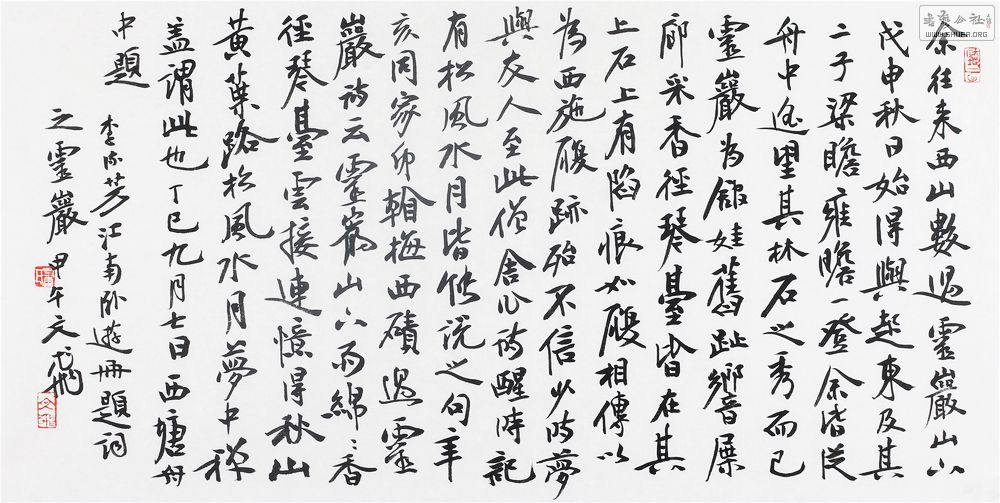 余往来西山數過靈巖山下
戊申秋日始得與起東及其
二子梁瞻雍瞻一登余皆從
舟中遥望其林石之秀而已
靈巖為館娃舊趾響屧
廊采香徑琴臺皆在其
上石上有陷痕如履相傳以
為西施履跡殆不信少時夢
與友人至此僧舍作詩醒時記
有松風水月皆能説之句辛
亥同家卯翰梅西磧過靈
巖詩云靈巖山下雨綿〻香
徑琴臺雲接連憶得秋山
黄葉路松風水月夢中禪
蓋謂此也丁巳九月七日西塘舟
中題
李流芳江南卧遊冊題詞
之靈巖 甲午